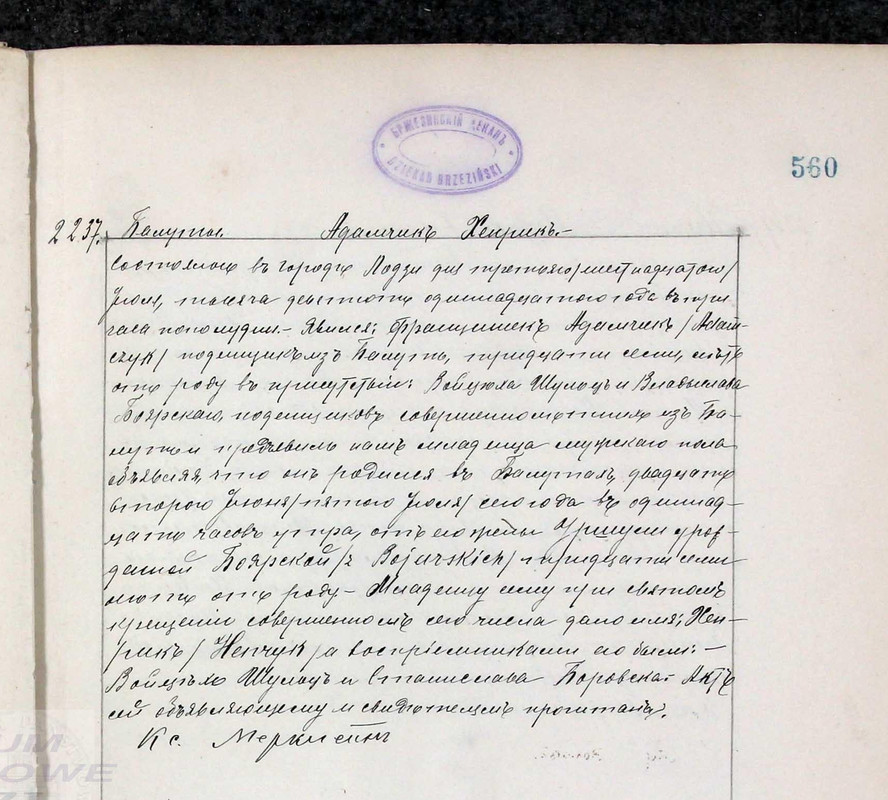 БРЖЕЗИНСКІЙ ДЕКАНЪ
DZIEKAN BRZEZIŃSKI
560
2237. Балуты. Адамчикъ Хенрикъ.-
Состоялось въ городѣ Лодзи дня третьяго/шестнадцатого/
Іюля, тысяча девятьсотъ одиннадцатого года въ три
часа пополудни.- Явился: Францишекъ Адамчикъ /Adam-
czyk/ поденщикъ изъ Балутъ, тридцати семи лѣтъ
отъ роду въ присутствіи: Войцѣха Шульцъ и Владыслава
Боярскаго, поденщиковъ совершеннолѣтнихъ изъ Ба-
лутъ и предъявилъ намъ младенца мужскаго пола
объявляя, что онъ родился въ Балутахъ, двадцать
второго Іюня/пятого Іюля/ сего года въ одиннад-
цать часовъ утра, отъ его жены Уршули урож-
денной Боярской /z Bojarskich/ тридцати семи
лѣтъ отъ роду.- Младенцу сему при святомъ
крещеніи совершенномъ сего числа дано имя: Хен-
рикъ /Henryk/ а воспріемниками его были:-
Войцѣхъ Шульцъ и Станислава Боровская. Актъ
сей объявляющему и свидѣтелямъ прочитанъ.
Кс.
UM
OWE